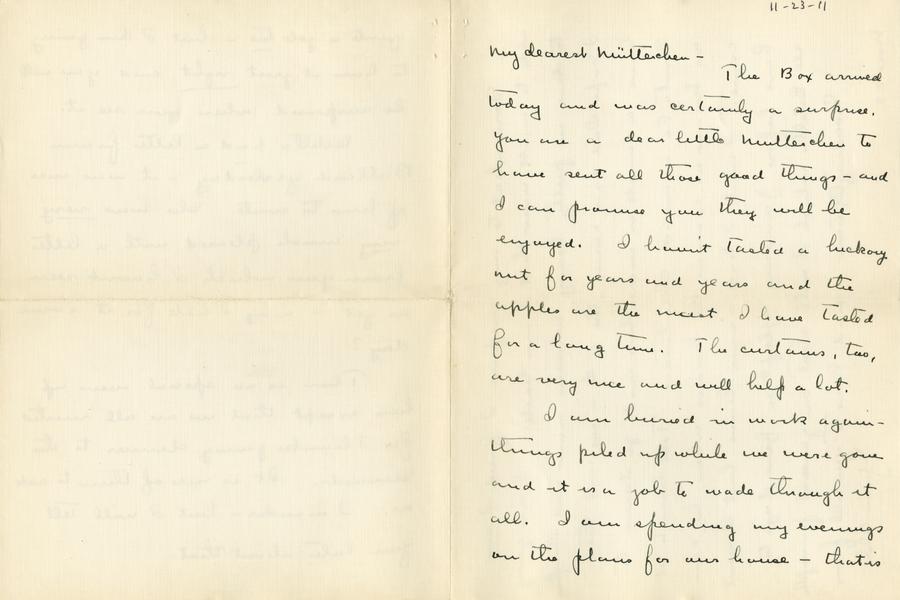 11-23-11
My dearest Mütterchen -
The Box arrived
today and was certainly a surprise.
You are a dear little Mütterchen to
have sent all those good things - and
I can promise you they will be
enjoyed. I havn't tasted a hickory
nut for years and years and the
apples are the nicest I have tasted
for a long time. The curtains, too,
are very nice and will help a lot.
I am buried in work again -
things piled up while we were gone
and it is a job to wade through it
all. I am spending my evenings
on the plans for our house - that is